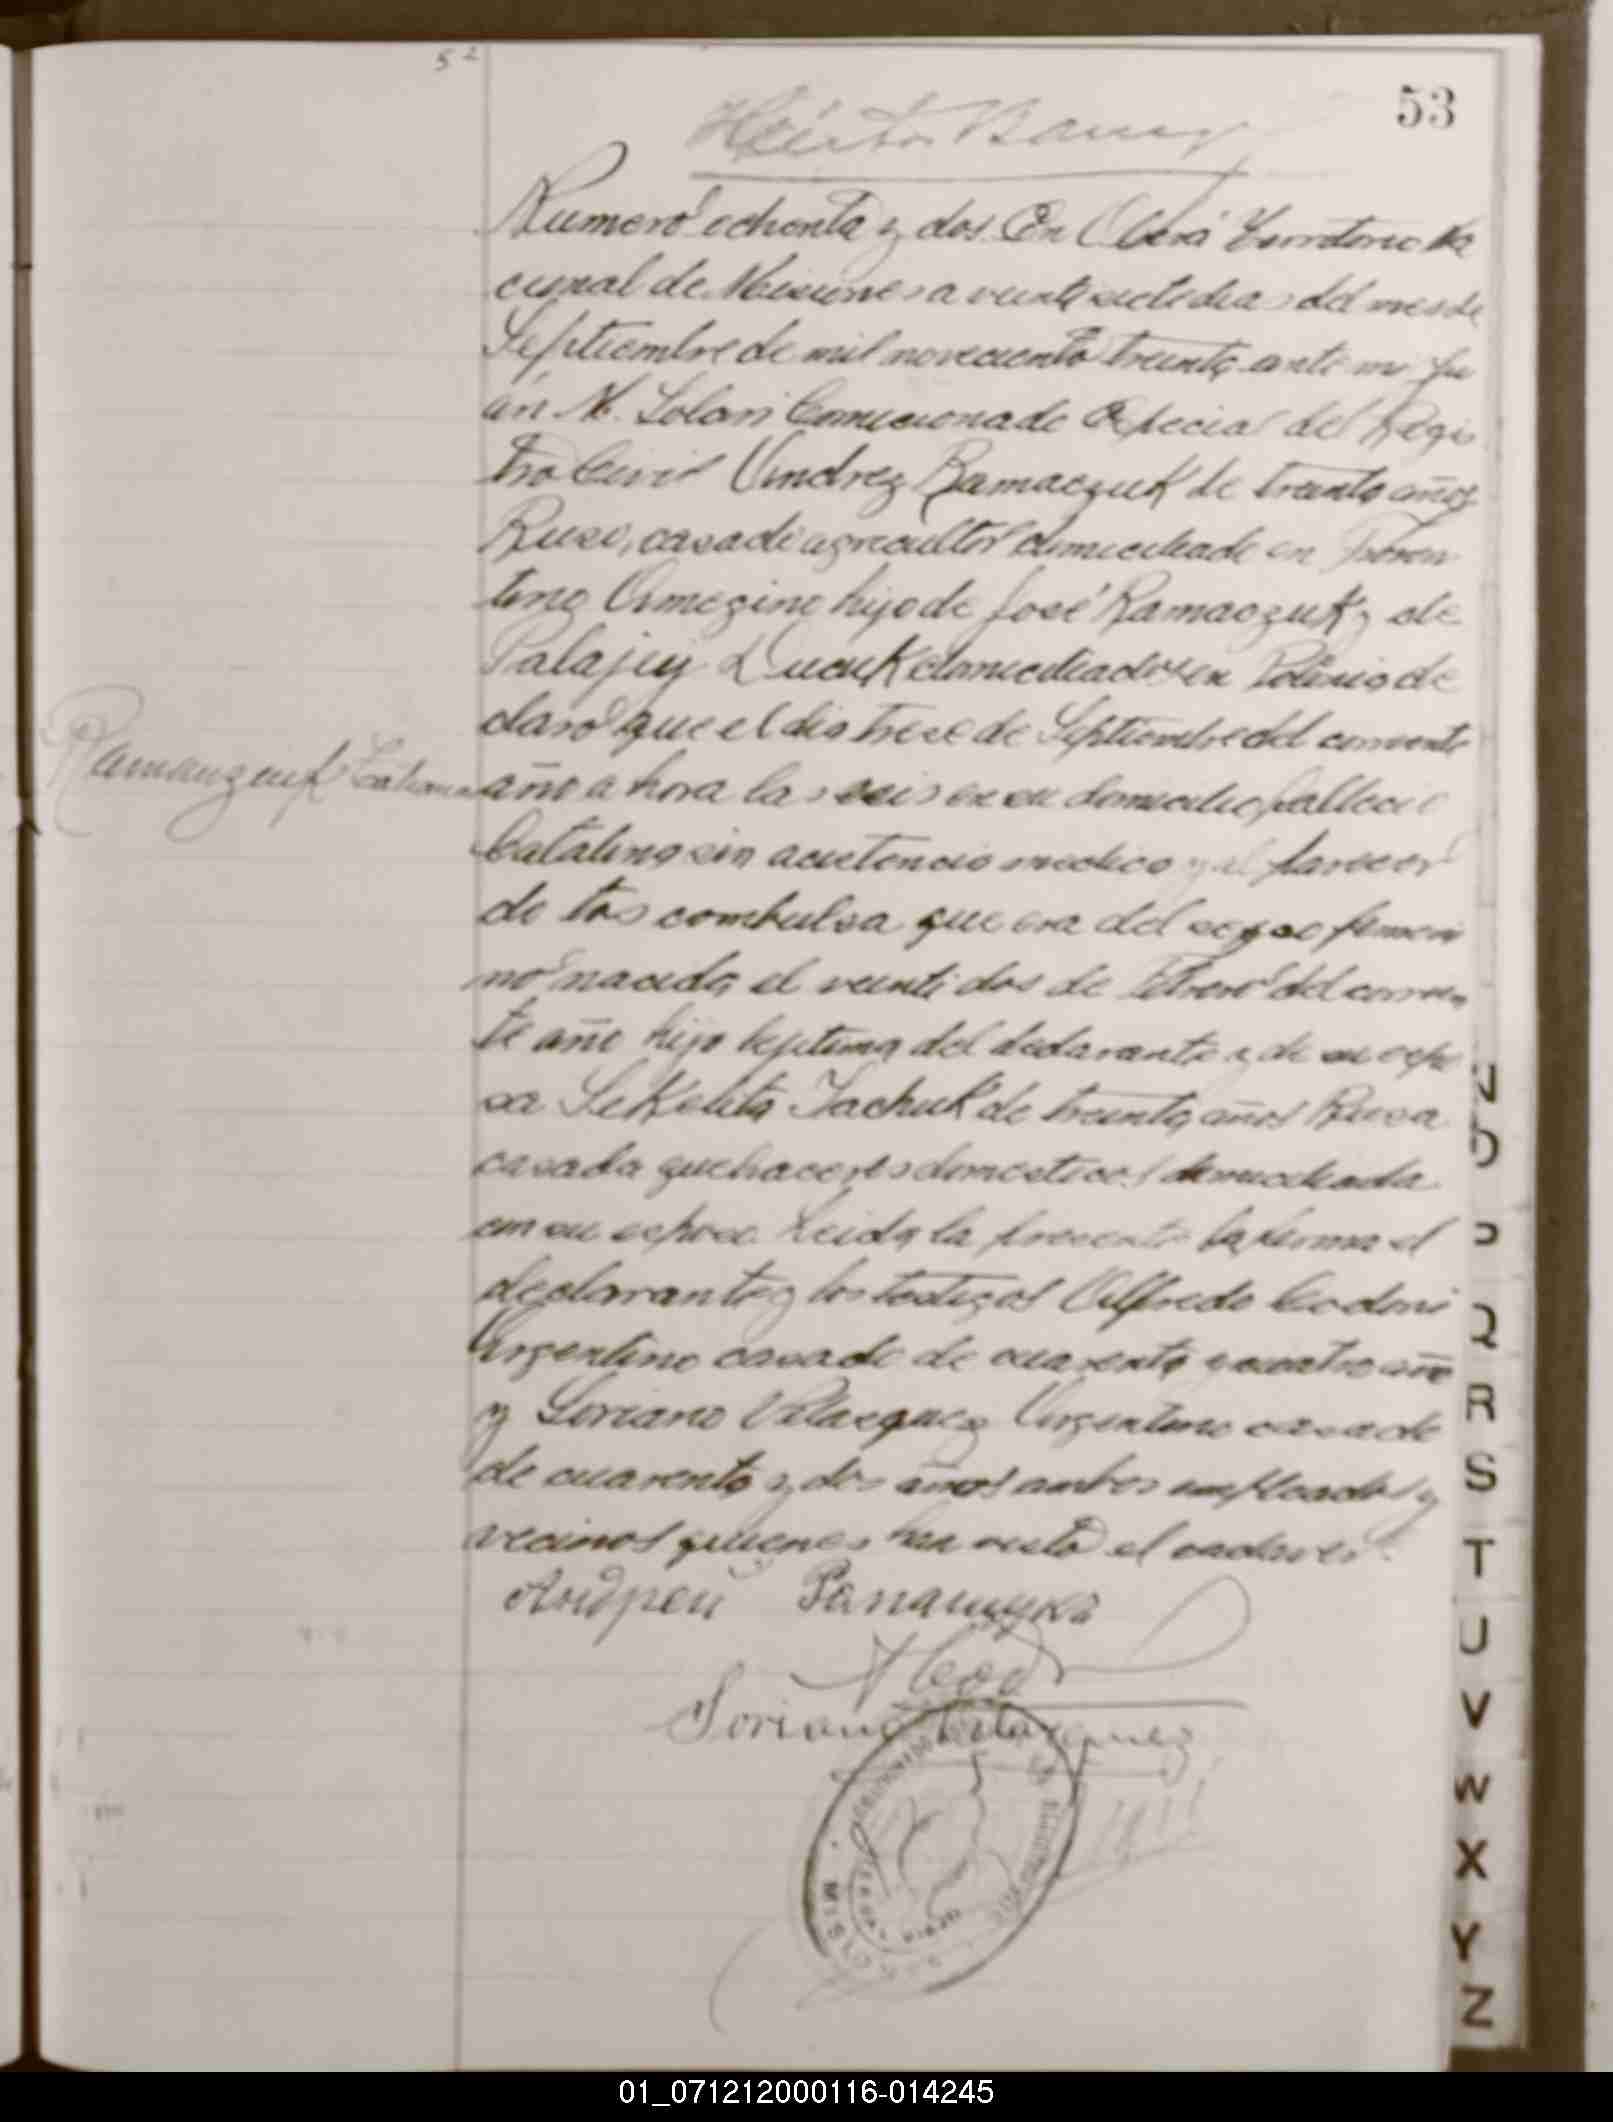 52
53
Héctor Bauny
Numero ochenta y dos. En Oberá Territorio Na
cional de Misiones a veinte siete dias del mes de
Septiembre de mil novecientos treinta ante mi Ju
an M. Solari Comicionado Especial del Regis
tro Civil Andrez Ramaczuk de treinta años
Ruso, casado agricultor domiciliado en Floren
tino Ameguino hijo de José Ramaczuk y de
Palajey Lucuk domiciliados en Polonia de
claró que el dia trece de Septiembre del corriente
Ramanzuk Catalina
año a hora las seis en su domicilio fallecio
Catalina sin acistencia medica y al parecer
de tos combulsa que era del sexso femeni
no nacida el veinti dos de Febrero del corrien
te año hija lejitima del declarante y de su espo
sa Sekleta Tachuk de treinta años Rusa
casada quehaceres domesticos domiciliada
con su esposo. Leida la presente la firma el
declarante y los testigos Alfredo Codoni
Argentino casado de cuarenta y cuatro año
y Soriano Velazquez Argentino casado
de cuarenta y dos años ambos empleados y
vecinos quienes han visto el cadaver.
Андрей
Soriano Velazquez
MISIONES
OBERÁ
N
O
P
Q
R
S
T
U
V
W
X
Y
Z
01_071212000116-014245